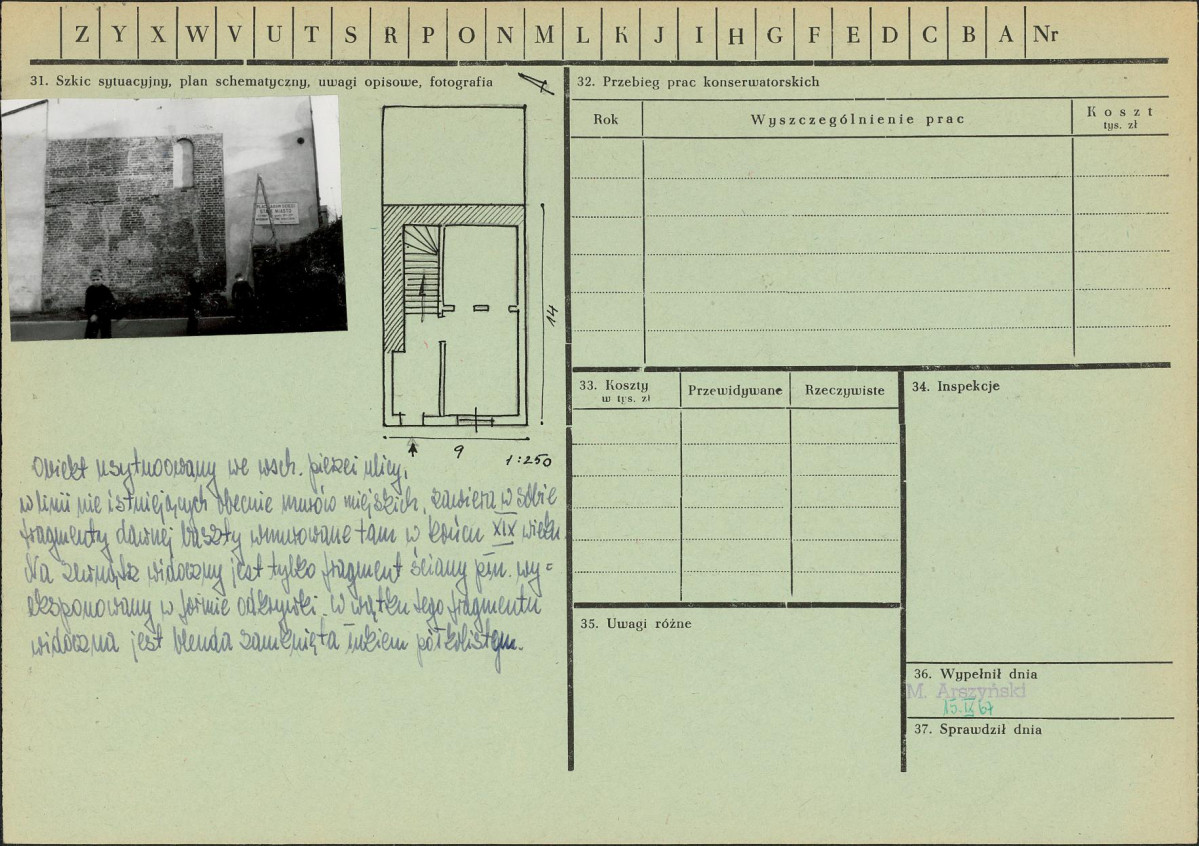 Z Y X W V U T S R P O N M L K J I H G F E D C B A Nr
31. Szkic sytuacyjny, plan schematyczny, uwagi opisowe, fotografia
14
9
1:250
Obiekt usytuowany we wsch. pierzei ulicy,
w linii nie istniejących obecnie murów miejskich, zawiera w sobie
fragmenty dawnej baszty wmurowane tam w końcu XIX wieku
Na zewnątrz widoczny jest tylko fragment ściany płn. wy=
eksponowany w formie odkrywki. W wątku tego fragmentu
widoczna jest blenda zamknięta łukiem półkolistym.
32. Przebieg prac konserwatorskich
Rok Wyszczególnienie prac Koszt
tys. zł
33. Koszty Przewidywane Rzeczywiste
w tys. zł
34. Inspekcje
35. Uwagi różne
36. Wypełnił dnia
M. Arszyński
15.IX 67
37. Sprawdził dnia